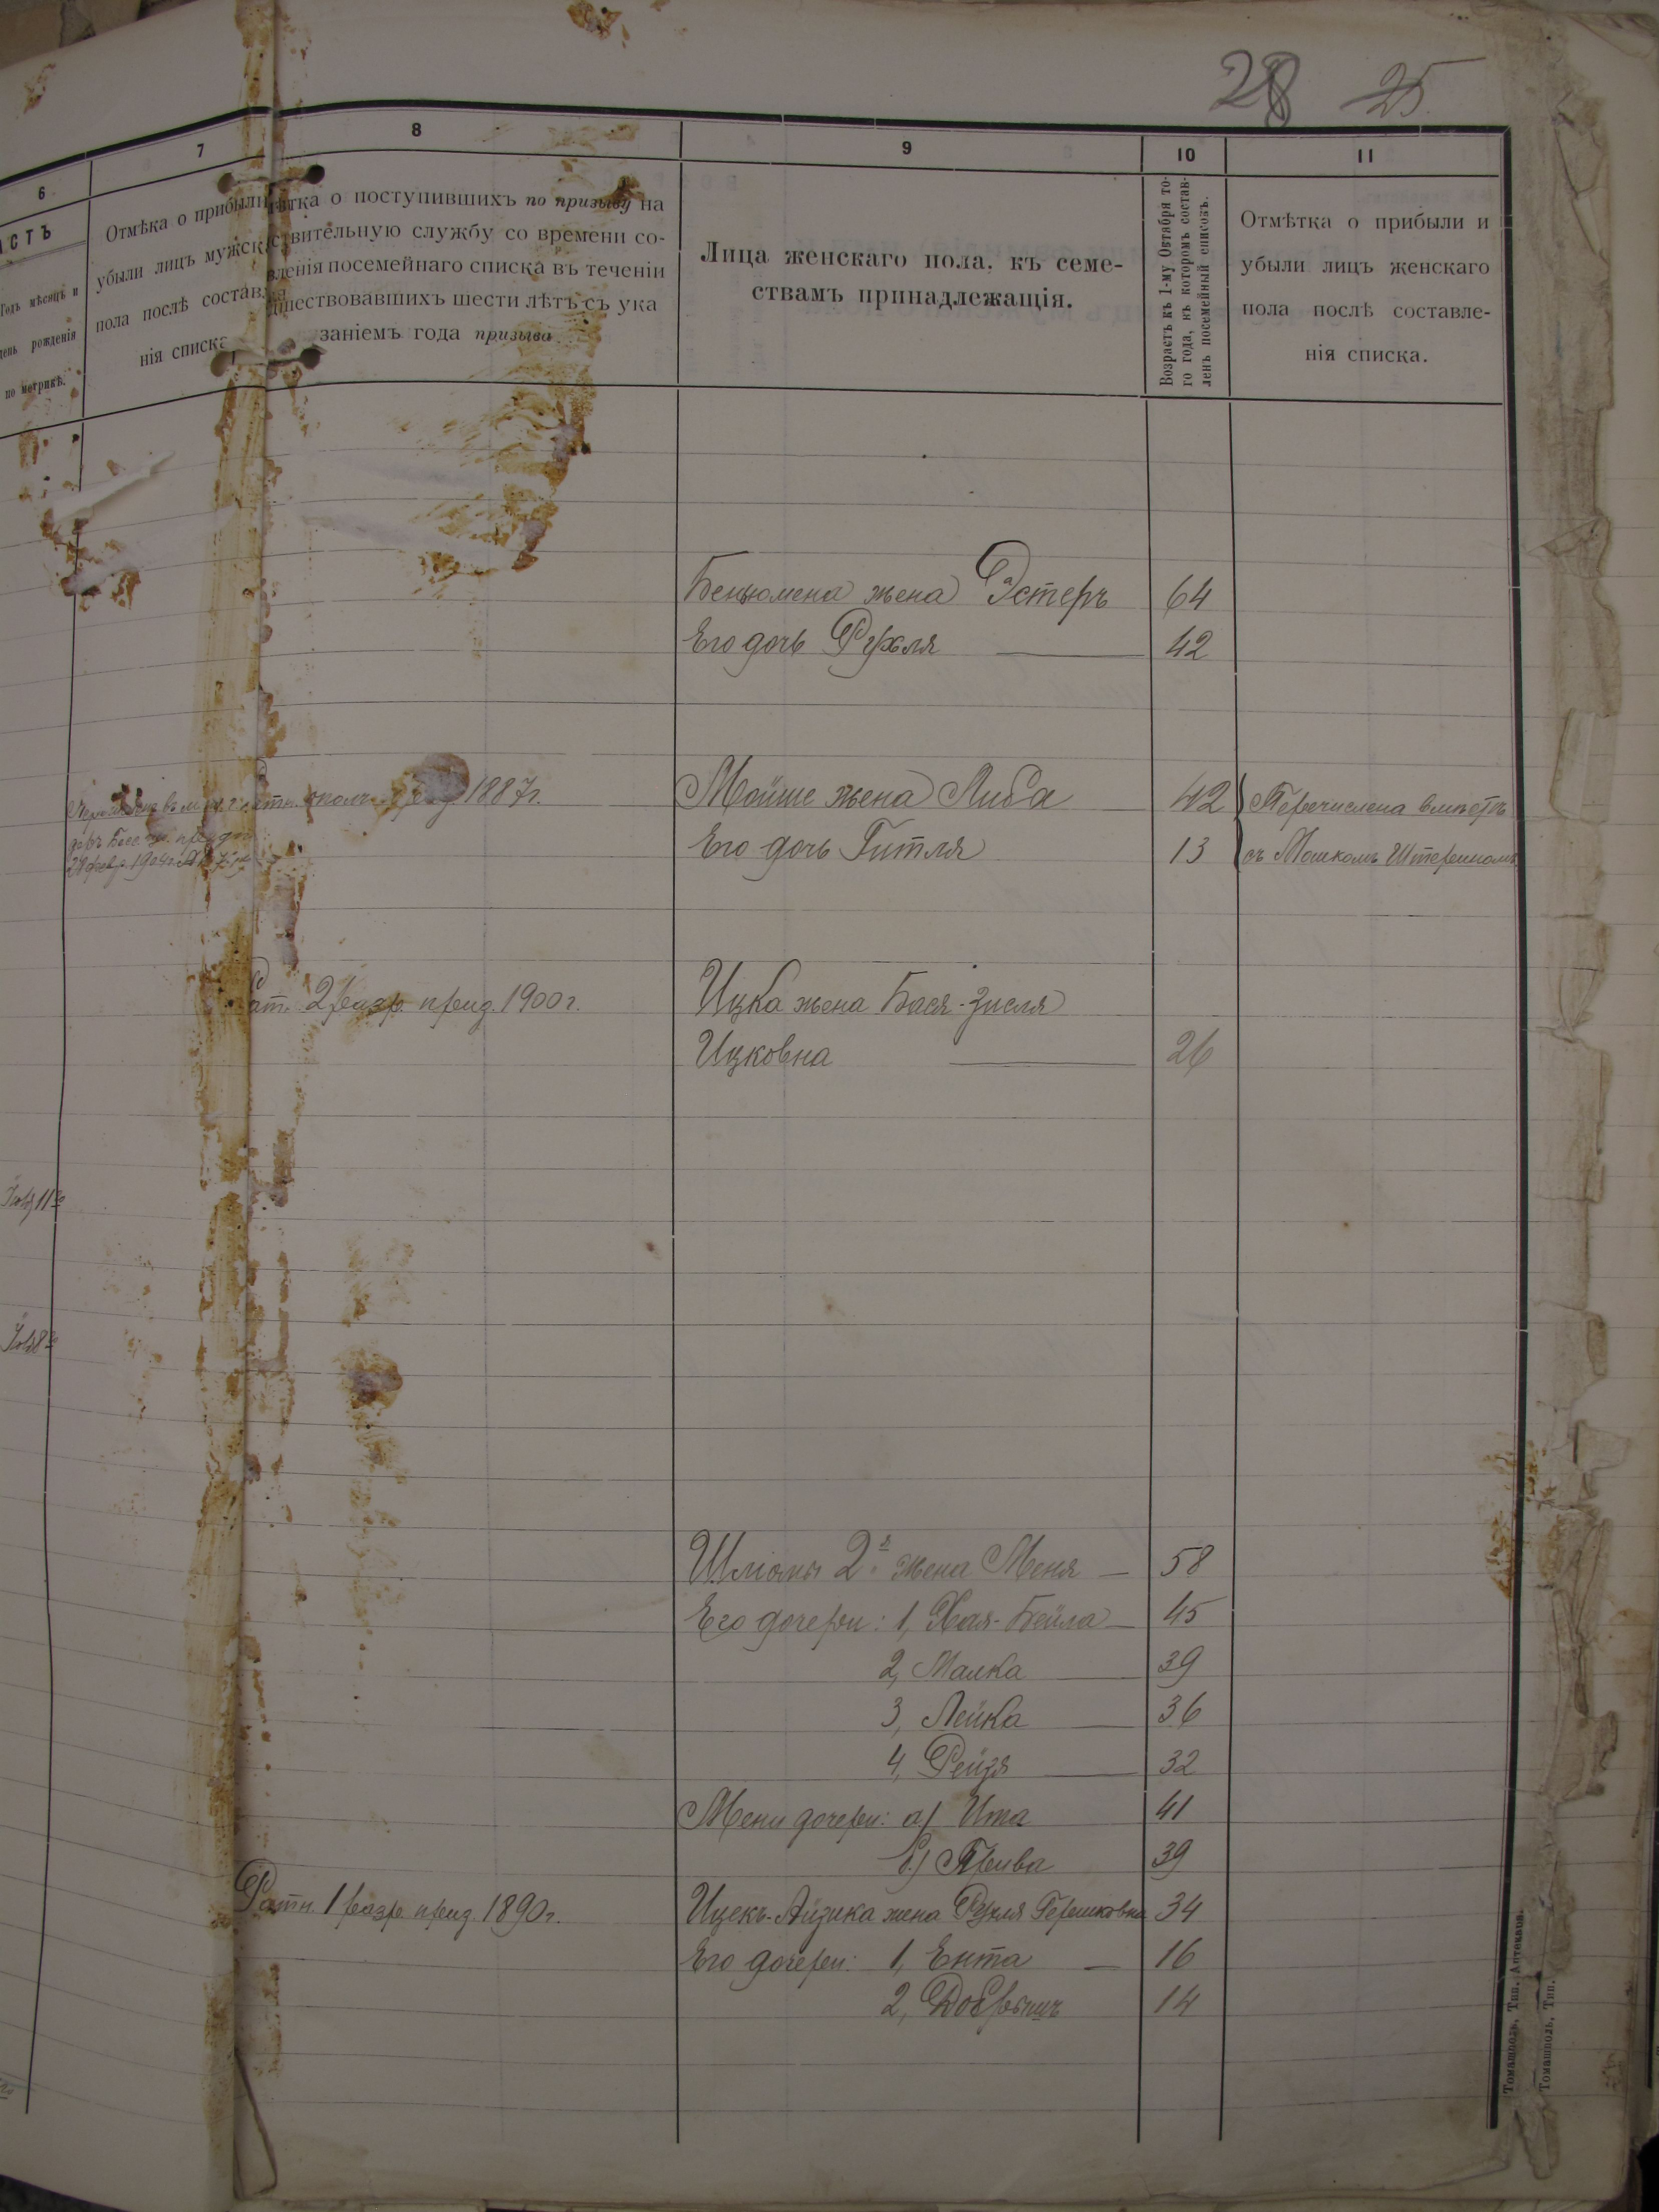 28 25.
6
7
8
9
10
11
АСТЬ
Годъ мѣсяцъ и
день рожденія
по метрикѣ.
Отмѣка о прибыли
убыли лицъ мужск
пола послѣ состав
нія списка
ѣтка о поступившихъ по призыву на
ствительную службу со времени со-
вленія посемейнаго списка въ теченіи
дшествовавшихъ шести лѣтъ съ ука
заніемъ года призыва
Лица женскаго пола, къ семе-
ствамъ принадлежащія.
Возрастъ къ 1-му Октября то-
го года, въ которомъ состав-
ленъ посемейный списокъ.
Отмѣтка о прибыли и
убыли лицъ женскаго
пола послѣ составле-
нія списка.
Беньюмена жена Эстеръ 64
Его дочь Рухля 42
1887г. Мойше жена Либа 42 Перечислена вмѣстѣ
Его дочь Гитля 13 съ Мошкомъ Штеренномъ
Рат. 2 разр. приз. 1900 г. Ицка жена Бася-Зисля
Ицковна 26
Шліомы 2я жена Меня 58
Его дочери: 1, Хая-Бейла 45
2, Малка 39
3, Лейка 36
4, Рейзя 32
Мени дочери: а) Ита 41
б) Прива 39
Ратн. 1 разр. приз. 1890г. Ицекъ-Айзика жена Рухля Гершковна 34
Его дочери: 1, Ента 16
2, Добрышъ 14
Томашполь, Тип. Аптекмана.
Томашполь, Тип.